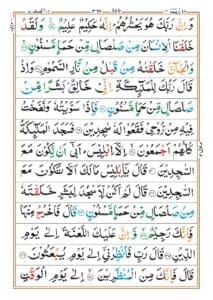 وَاِنَّ رَبَّكَ هُوَ يَحْشُرُهُمْ اِنَّهٗ حَكِيْمٌ عَلِيْمٌ وَلَقَدْ
خَلَقْنَا الْاِنْسَانَ مِنْ صَلْصَالٍ مِّنْ حَمَاٍ مَّسْنُوْنٍ
وَالْجَآنَّ خَلَقْنٰهُ مِنْ قَبْلُ مِنْ نَّارِ السَّمُوْمِ وَاِذْ
قَالَ رَبُّكَ لِلْمَلٰٓئِكَةِ اِنِّيْ خَالِقٌۢ بَشَرًا مِّنْ
صَلْصَالٍ مِّنْ حَمَاٍ مَّسْنُوْنٍ فَاِذَا سَوَّيْتُهٗ وَنَفَخْتُ
فِيْهِ مِنْ رُّوْحِيْ فَقَعُوْا لَهٗ سٰجِدِيْنَ فَسَجَدَ الْمَلٰٓئِكَةُ
كُلُّهُمْ اَجْمَعُوْنَ اِلَّآ اِبْلِيْسَ اَبٰٓى اَنْ يَّكُوْنَ مَعَ
السّٰجِدِيْنَ قَالَ يٰٓاِبْلِيْسُ مَا لَكَ اَلَّا تَكُوْنَ مَعَ
السّٰجِدِيْنَ قَالَ لَمْ اَكُنْ لِّاَسْجُدَ لِبَشَرٍ خَلَقْتَهٗ
مِنْ صَلْصَالٍ مِّنْ حَمَاٍ مَّسْنُوْنٍ قَالَ فَاخْرُجْ مِنْهَا
فَاِنَّكَ رَجِيْمٌ وَّاِنَّ عَلَيْكَ اللَّعْنَةَ اِلٰى يَوْمِ
الدِّيْنِ قَالَ رَبِّ فَاَنْظِرْنِيْٓ اِلٰى يَوْمِ يُبْعَثُوْنَ
قَالَ فَاِنَّكَ مِنَ الْمُنْظَرِيْنَ اِلٰى يَوْمِ الْوَقْتِ